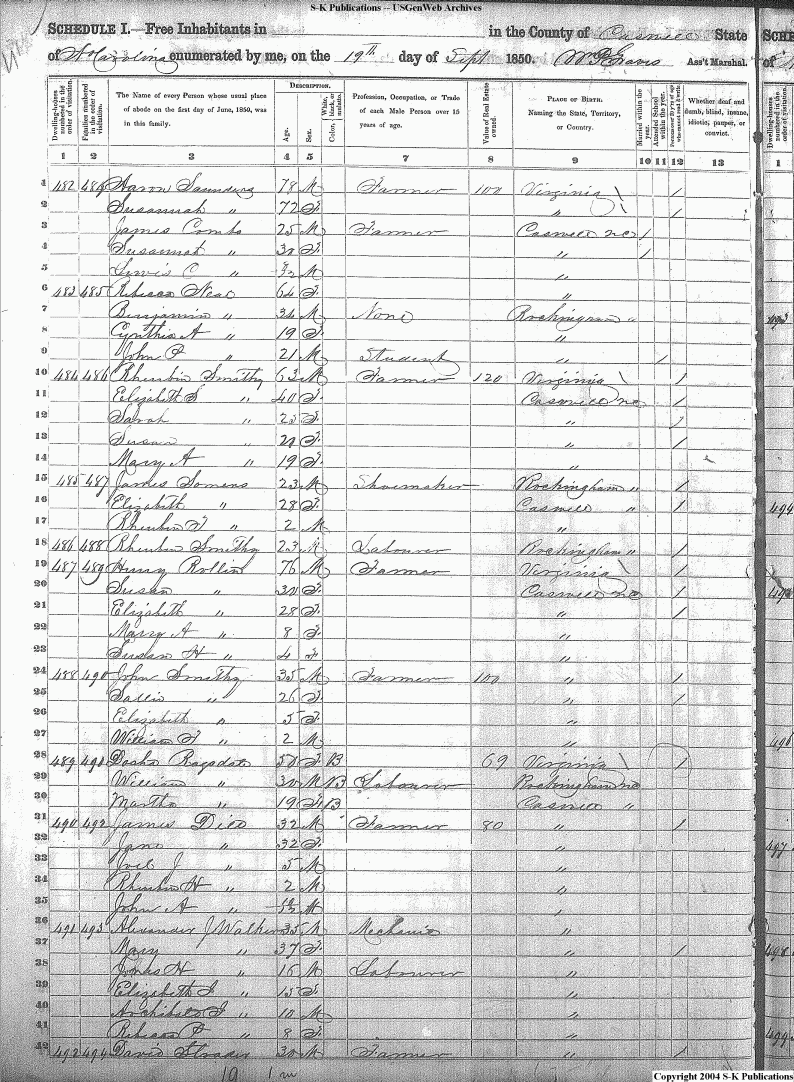 S-K Publications -- USGenWeb Archives
SCHEDULE I.—Free Inhabitants in in the County of Caswell State
of N Carolina enumerated by me, on the 19th day of Sept 1850. Ass't Marshal.
Dwelling-houses numbered in the order of visitation.
Families numbered in the order of visitation.
The Name of every Person whose usual place of abode on the first day of June, 1850, was in this family.
DESCRIPTION.
Age.
Sex.
Color, White, black, or mulatto.
Profession, Occupation, or Trade of each Male Person over 15 years of age.
Value of Real Estate owned.
PLACE OF BIRTH. Naming the State, Territory, or Country.
Married within the year.
Attended School within the year.
Whether deaf and dumb, blind, insane, idiotic, pauper, or convict.
1 2 3 4 5 6 7 8 9 10 11 12 13
1 482 484 Aaron Saunders 78 M Farmer 100 Virginia /
2 Susannah " 72 F " /
3 James Combs 25 M Farmer Caswell NC /
4 Susannah " 30 F " /
5 Lewis C " M "
6 483 485 Rebecca Neal 64 F "
7 Benjamin " 34 M None Rockingham "
8 Cynthia A " 19 F "
9 John P " 21 M Student " /
10 484 486 Rheubin Smithy 63 M Farmer 120 Virginia /
11 Elizabeth S " 40 F Caswell NC /
12 Sarah " 25 F " /
13 Susan " 21 F " /
14 Mary A " 19 F "
15 485 487 James Somers 23 M Shoemaker Rockingham " /
16 Elizabeth " 28 F Caswell " /
17 Rheubin " 2 M "
18 486 488 Rheubin Smithy 23 M Labourer Rockingham " /
19 487 489 Henry Rollin 76 M Farmer Virginia /
20 Susan " 30 F Caswell NC /
21 Elizabeth " 28 F " /
22 Mary A " 8 F "
23 Susan H " 4 F "
24 488 490 John Smithy 35 M Farmer 100 " /
25 Sallie " 26 F " /
26 Elizabeth " 5 F "
27 William " 2 M "
28 489 491 Ragsdale 50 F B 69 Virginia /
29 William " 30 M B Labourer Rockingham NC
30 Martha " 19 F B Caswell "
31 490 492 James Dill 32 M Farmer 80 " /
32 Jane " 32 F "
33 Joel J " 5 M "
34 Rheubin H " 2 M "
35 John A " M "
36 491 493 Alexander J Walker 35 M Mechanic "
37 Mary " 37 F " /
38 Jonas H " 16 M Labourer "
39 Elizabeth " 15 F "
40 Archibald " 10 M "
41 Rebecca " 8 F "
42 492 494 David Strader 30 M Farmer " /
Copyright 2004 S-K Publications